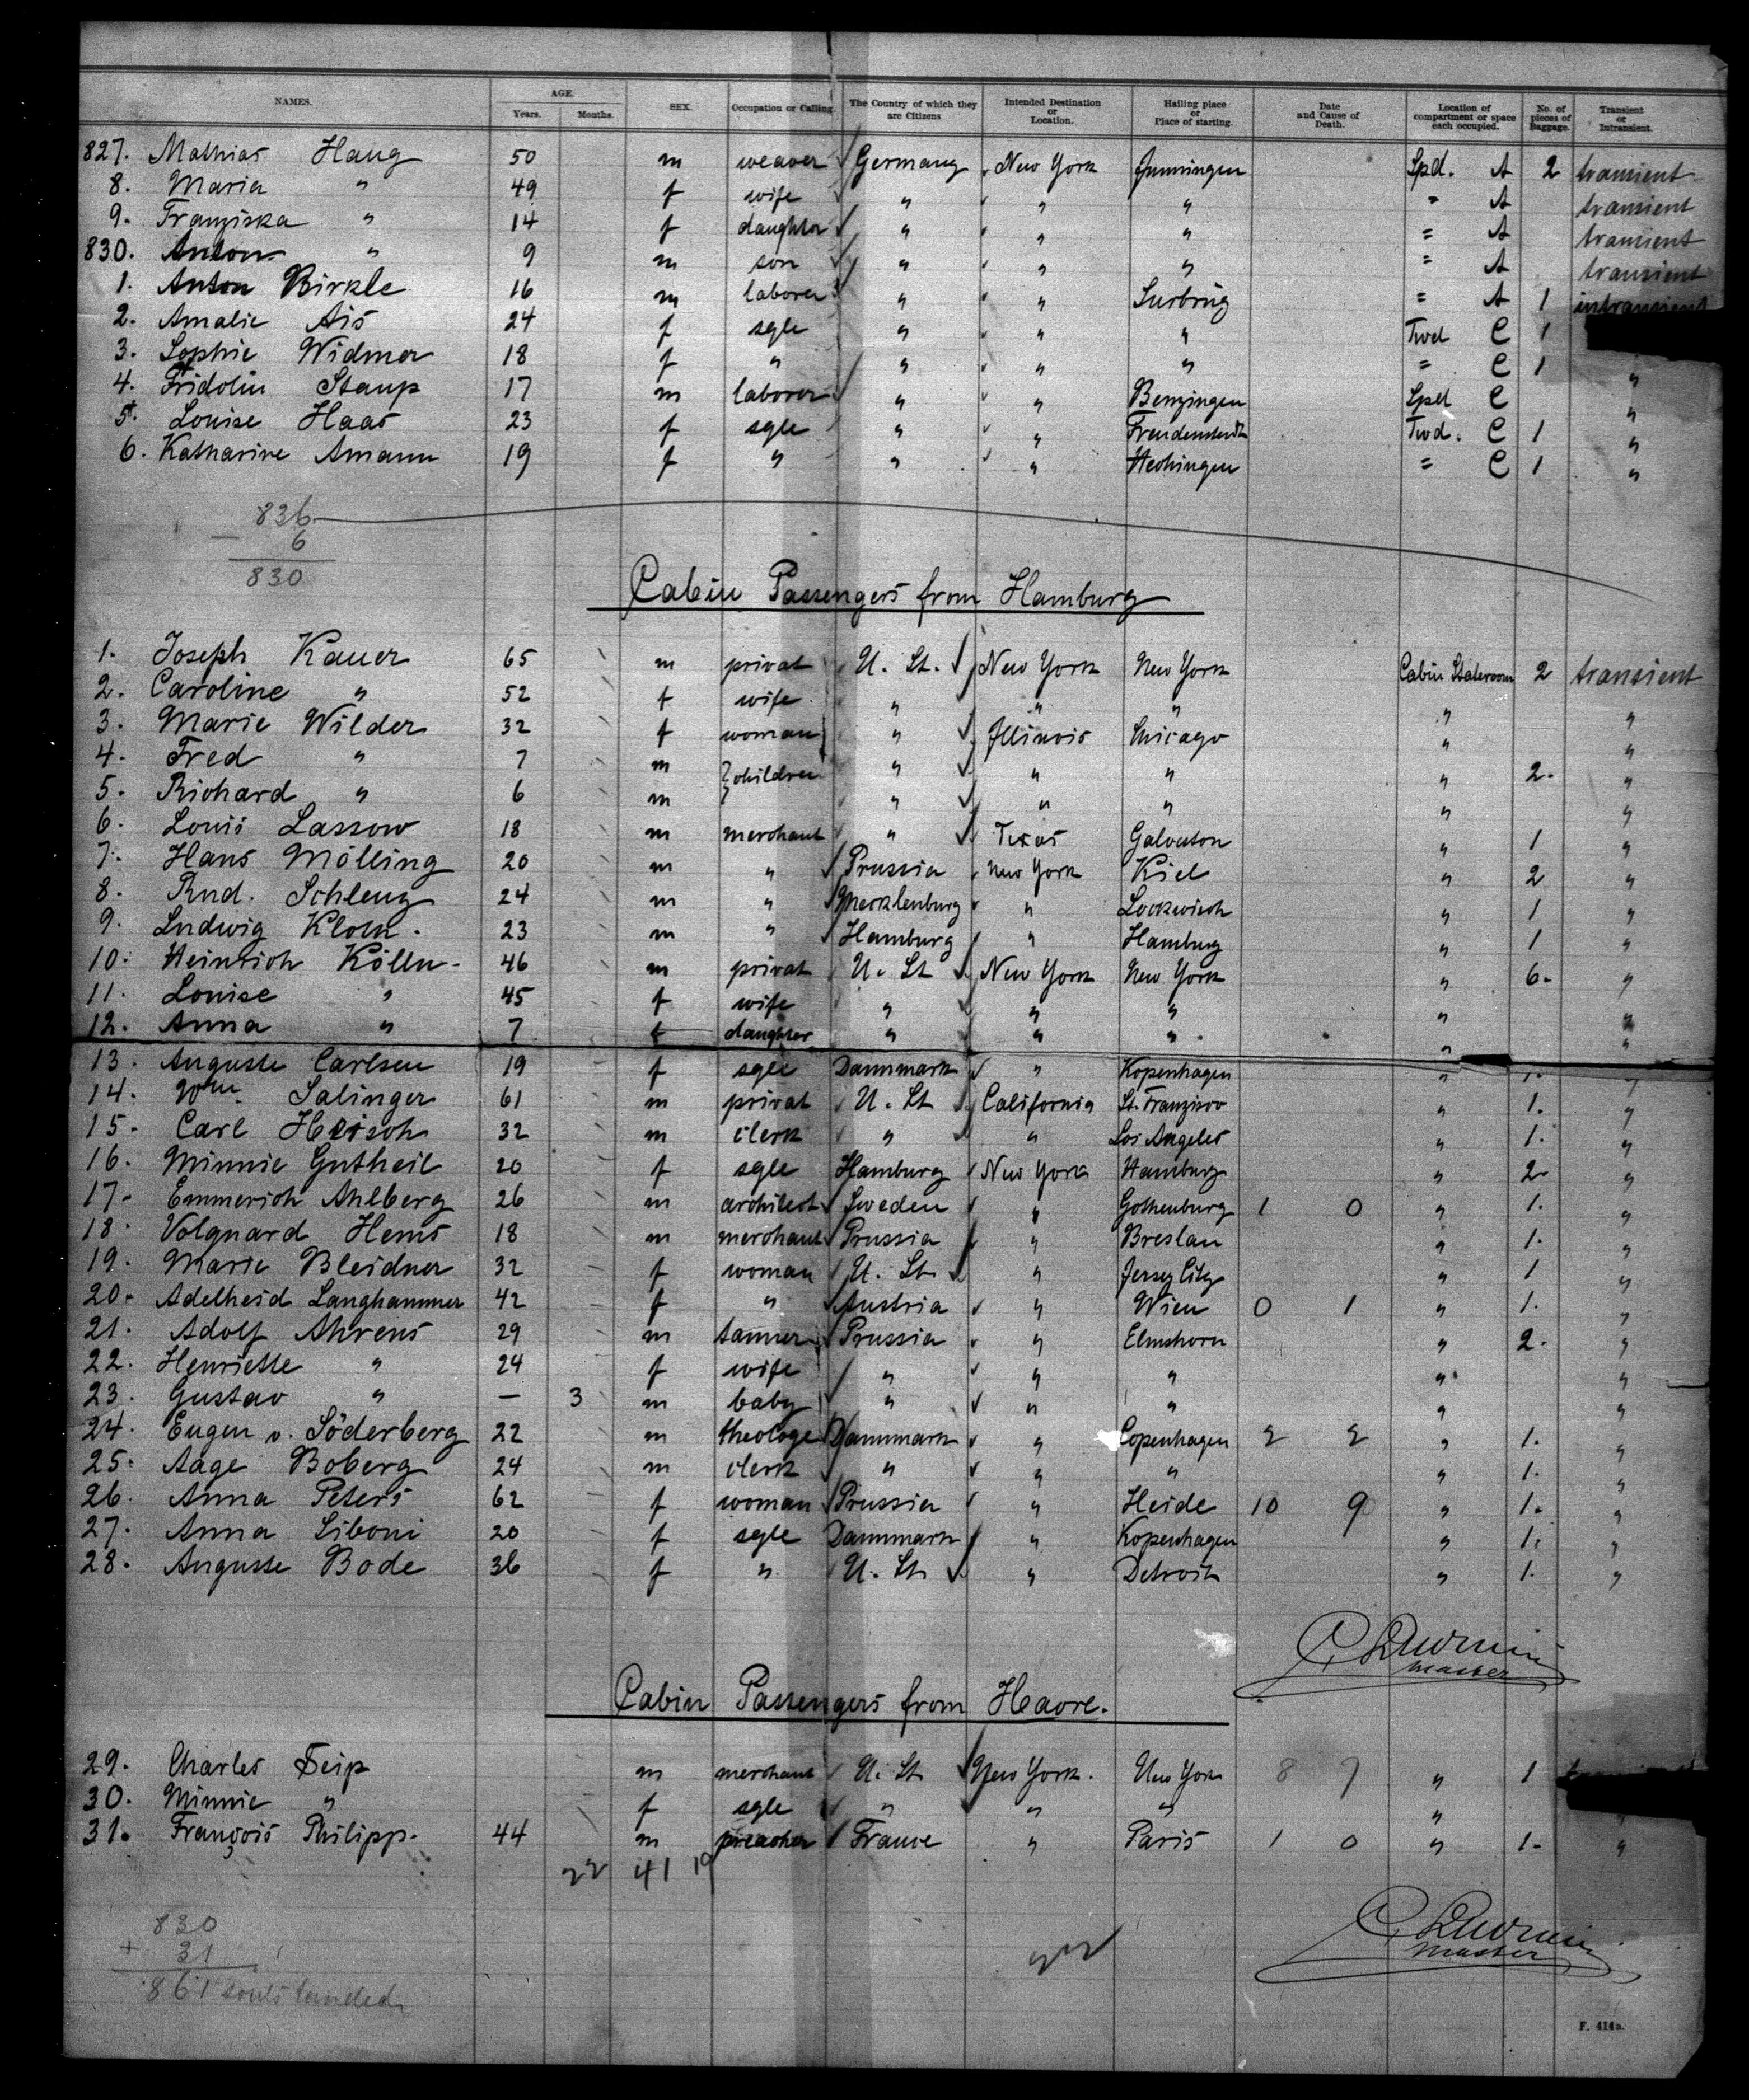 NAMES. AGE. Years. Months. SEX. Occupation or Calling. The Country of which they are Citizens Intended Destination or Location. Hailing place or Place of starting. Date and Cause of Death. Location of compartment or space each occupied. No. of pieces of Baggage. Transient or Intransient.
827. Mathias Haug 50 m weaver Germany New York Junningen Spd. A 2 transient
8. Maria " 49 f wife " " " " A transient
9. Franziska " 14 f daughter " " " = A transient
830. Anton " 9 m son " " " = A transient
1. Anton Birkle 16 m laborer " " = A 1 intransient
2. Amalie Ais 24 f sgle " " " Twd C 1
3. Sophie Widmer 18 f " " " " = C 1 "
4. Fridolin Staup 17 m laborer " " Benzingen Spd C "
5. Louise Haas 23 f sgle " " Freudenstadt Twd. C 1 "
6. Katharine Amann 19 f " " " Hechingen = C 1 "
836
- 6
830
Cabin Passengers from Hamburg
1. Joseph Kauer 65 m privat U. St. New York New York Cabin Stateroom 2 transient
2. Caroline " 52 f wife " " " " "
3. Marie Wilder 32 f woman " Illinois Chicago " "
4. Fred " 7 m } children " " " " 2. "
5. Richard " 6 m " " " " "
6. Louis Lassow 18 m merchant " Texas Galveston " 1 "
7. Hans Mölling 20 m " Prussia New York Kiel " 2 "
8. Rud. Schlenz 24 m " Mecklenburg " " 1 "
9. Ludwig 23 m " Hamburg " Hamburg " 1 "
10. Heinrich Kölln 46 m privat U. St New York New York " 6. "
11. Louise " 45 f wife " " " " "
12. Anna " 7 f daughter " " " " "
13. Auguste Carlsen 19 f sgle Dannmark " Kopenhagen " 1. "
14. Wm. Salinger 61 m privat U. St California St. Franzisco " 1. "
15. Carl Hirsch 32 m clerk " " Los Angeles " 1. "
16. Minnie Gutheil 20 f sgle Hamburg New York Hamburg " 2 "
17. Emmerich Ahlberg 26 m architect Sweden " Gothenburg 1 0 " 1. "
18. Volquard Hems 18 m merchant Prussia " Breslau " 1. "
19. Marie Bleidner 32 f woman U. St. " Jersey City " 1 "
20. Adelheid Langhammer 42 f " Austria " Wien 0 1 " 1. "
21. Adolf Ahrens 29 m tanner Prussia " Elmshorn " 2. "
22. Henriette " 24 f wife " " " " "
23. Gustav " — 3 m baby " " " " "
24. Eugen v. Söderberg 22 m theologe Dannmark " Copenhagen 2 2 " 1. "
25. Aage Boberg 24 m clerk " " " " 1. "
26. Anna Peters 62 f woman Prussia " Heide 10 9 " 1. "
27. Anna Siboni 20 f sgle Dannmark " Kopenhagen " 1. "
28. Auguste Bode 36 f " U. St. " Detroit " 1. "
master
Cabin Passengers from Havre.
29. Charles Seip m merchant U. St. New York. New York 8 7 " 1
30. Minnie " f sgle " " " " "
31. François Philipp. 44 m preacher France " Paris 1 0 " 1. "
22 41 19
830
+ 31
861 souls landed
master
F. 414a.